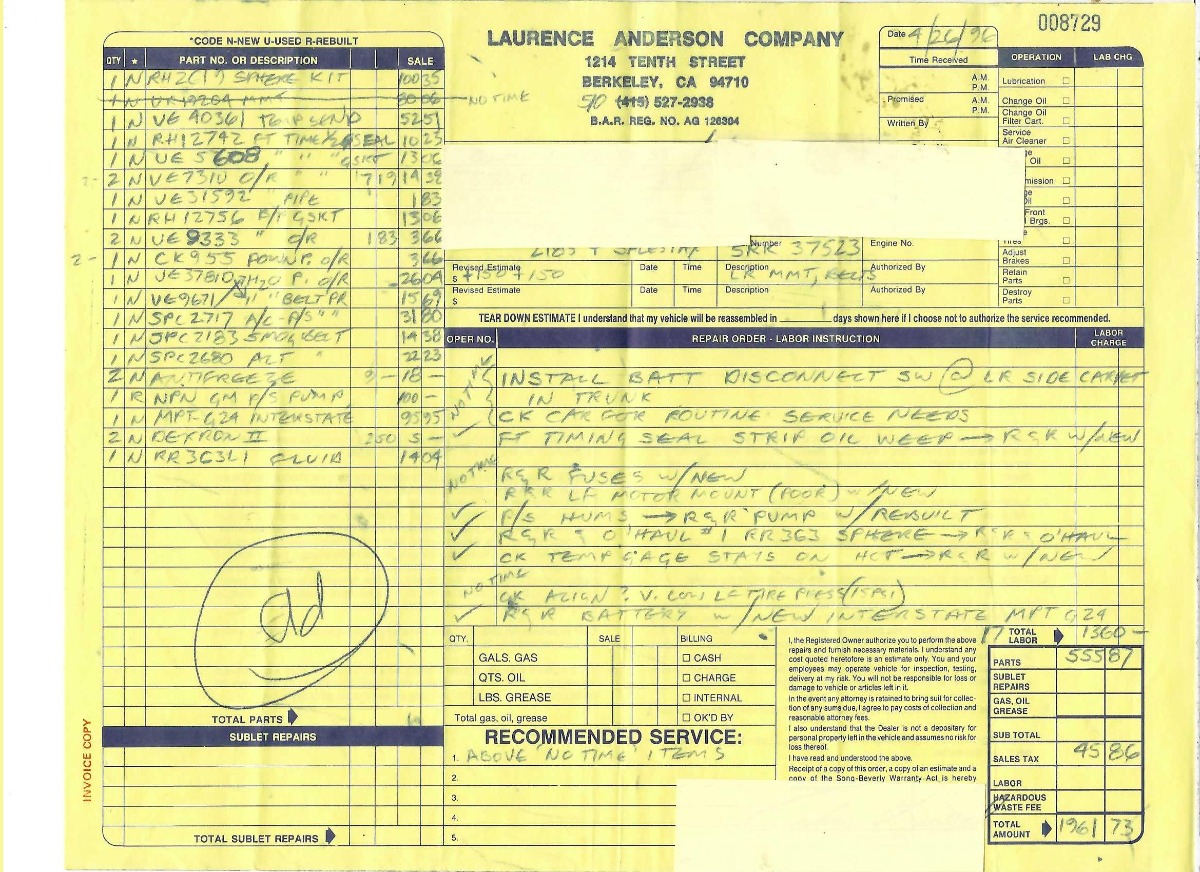 008729
*CODE N-NEW U-USED R-REBUILT
QTY * PART NO. OR DESCRIPTION SALE
1 N RH2C19 SPHERE KIT 10035
1 N 8006 NO TIME
1 N VE 40361 TEMP SEND 5251
1 N RH12742 FT TIME SEAL 1023
1 N UE 5608 " " GSKT 1306
2 N VE7310 O/R " " 719 1438
1 N UE31592 " PIPE 183
1 N RH12756 GSKT 1306
2 N UE 9333 " O/R 183 366
2- 1 N CK955 P. O/R 366
1 N UE37810 H2O P. O/R 2604
1 N VE9671 " " BELT PR 1569
1 N SPC2717 A/C-P/S " " 3180
1 N SPC2183 SMOG BELT 1438
1 N SPC2680 ALT " 2223
2 N ANTIFREEZE 9- 18-
1 R NPN GM P/S PUMP 100-
1 N MPT-G24 INTERSTATE 9595
2 N DEXRON II 250 5-
1 N RR363L1 FLUID 1404
TOTAL PARTS
SUBLET REPAIRS
TOTAL SUBLET REPAIRS
INVOICE COPY
LAURENCE ANDERSON COMPANY
1214 TENTH STREET
BERKELEY, CA 94710
510 (415) 527-2938
B.A.R. REG. NO. AG 126304
Date 4/26/96
Time Received
A.M.
P.M.
Promised A.M.
P.M.
Written By
OPERATION LAB CHG
Lubrication
Change Oil
Change Oil
Filter Cart.
Service
Air Cleaner
Oil
mission
Front
Brgs.
Tires
Adjust
Brakes
Retain
Parts
Destroy
Parts
Number SRR 37523 Engine No.
Revised Estimate Date Time Description Authorized By
$ +750 +150 LR MMT, BELTS
Revised Estimate Date Time Description Authorized By
$
TEAR DOWN ESTIMATE I understand that my vehicle will be reassembled in days shown here if I choose not to authorize the service recommended.
OPER NO. REPAIR ORDER - LABOR INSTRUCTION LABOR CHARGE
NO TIME
INSTALL BATT DISCONNECT SW @ LR SIDE CARPET
IN TRUNK
CK CAR FOR ROUTINE SERVICE NEEDS
FT TIMING SEAL STRIP OIL WEEP → R&R W/NEW
NO TIME R&R FUSES W/NEW
R&R LF MOTOR MOUNT (POOR) W/NEW
P/S HUMS → R&R PUMP W/REBUILT
R&R & O'HAUL #1 RR363 SPHERE → R&R & O'HAUL
CK TEMP GAGE STAYS ON HOT → R&R W/NEW
NO TIME
CK ALIGN? V. LOW LF TIRE PRESS (15PSI)
R&R BATTERY W/NEW INTERSTATE MPT G24
QTY. SALE BILLING
GALS. GAS CASH
QTS. OIL CHARGE
LBS. GREASE INTERNAL
Total gas, oil, grease OK'D BY
RECOMMENDED SERVICE:
1. ABOVE 'NO TIME' ITEMS
2.
3.
4.
5.
I, the Registered Owner authorize you to perform the above
repairs and furnish necessary materials. I understand any
cost quoted heretofore is an estimate only. You and your
employees may operate vehicle for inspection, testing,
delivery at my risk. You will not be responsible for loss or
damage to vehicle or articles left in it.
In the event any attorney is retained to bring suit for collec-
tion of any sums due, I agree to pay costs of collection and
reasonable attorney fees.
I also understand that the Dealer is not a depositary for
personal property left in the vehicle and assumes no risk for
loss thereof.
I have read and understood the above.
Receipt of a copy of this order, a copy of an estimate and a
copy of the Song-Beverly Warranty Act is hereby
17 TOTAL LABOR 1360-
PARTS 555 87
SUBLET REPAIRS
GAS, OIL GREASE
SUB TOTAL
SALES TAX 45 86
LABOR
HAZARDOUS WASTE FEE
TOTAL AMOUNT 1961 73